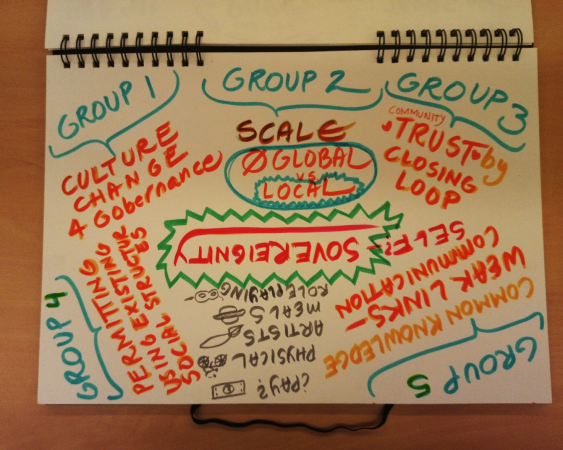 GROUP 1
CULTURE
CHANGE
4 Gobernance
GROUP 2
SCALE
Ø GLOBAL
VS
LOCAL
GROUP 3
COMMUNITY
TRUST by
CLOSING
LOOP
SELF-
SOVEREIGNITY
GROUP 4
PERMITING
USING EXISTING
SOCIAL STRUCTURES
GROUP 5
COMMON KNOWLEDGE
WEAK LINKS-
COMMUNICATION
¿PAY?
PHYSICAL
ARTISTS
MEALS
ROLEPLAYING